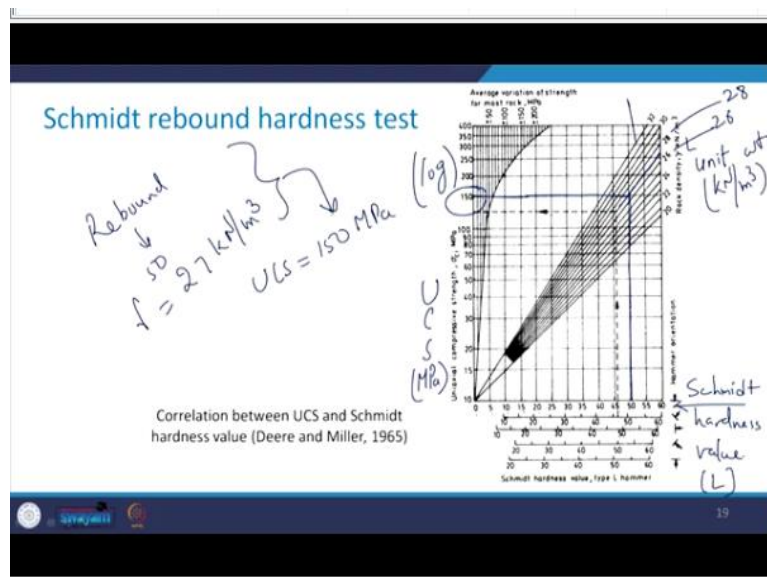 Schmidt rebound hardness test
Rebound
50
γ = 27 kN/m³
UCS = 150 MPa
Correlation between UCS and Schmidt
hardness value (Deere and Miller, 1965)
Average variation of strength
for most rock, MPa
±50
±100
±150
±200
(log)
400
350
300
250
200
150
100
50
40
30
20
15
10
Uniaxial compressive strength, σc, MPa
U
C
S
(MPa)
32
30
28
26
22
20
Rock density, γ kN/m³
28
26
unit wt.
(kN/m³)
Hammer orientation
0 5 10 15 20 25 30 35 40 45 50 55 60
10 20 30 40 50 60
20 30 40 50 60
20 30 40 50 60
Schmidt hardness value, type L hammer
Schmidt
hardness
value
(L)
swayam
19